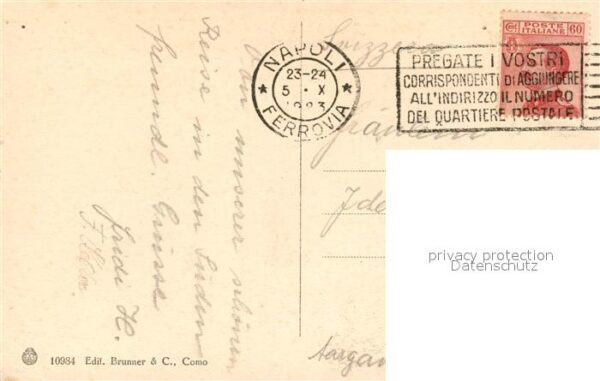 POSTE ITALIANE
60
Svizzera
NAPOLI
23-24
5 · X
1923
FERROVIA
PREGATE I VOSTRI
CORRISPONDENTI DI AGGIUNGERE
ALL'INDIRIZZO IL NUMERO
DEL QUARTIERE POSTALE
Von unserer schönen
Reise in den Süden
freundl. Grüsse
Fridi H.
Fräulein
Ida
Aargau
privacy protection
Datenschutz
10984 Edit. Brunner & C., Como